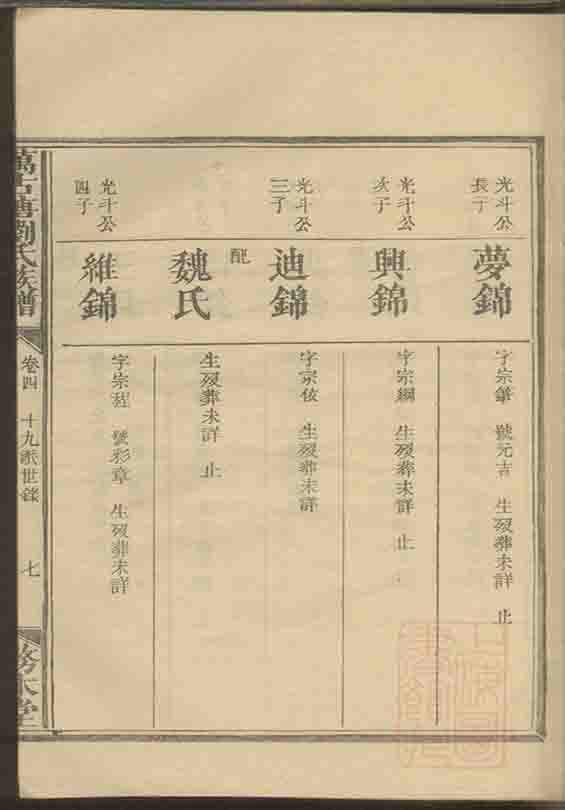 光斗公
長子
夢錦
字宗肇　號元吉　生歿葬未詳　止
光斗公
次子
興錦
字宗綱　生歿葬未詳　止
光斗公
三子
迪錦
字宗佽　生歿葬未詳
配
魏氏
生歿葬未詳　止
光斗公
四子
維錦
字宗程　號彩章　生歿葬未詳
劉氏族譜
卷四　十九派世錄　七
務本堂